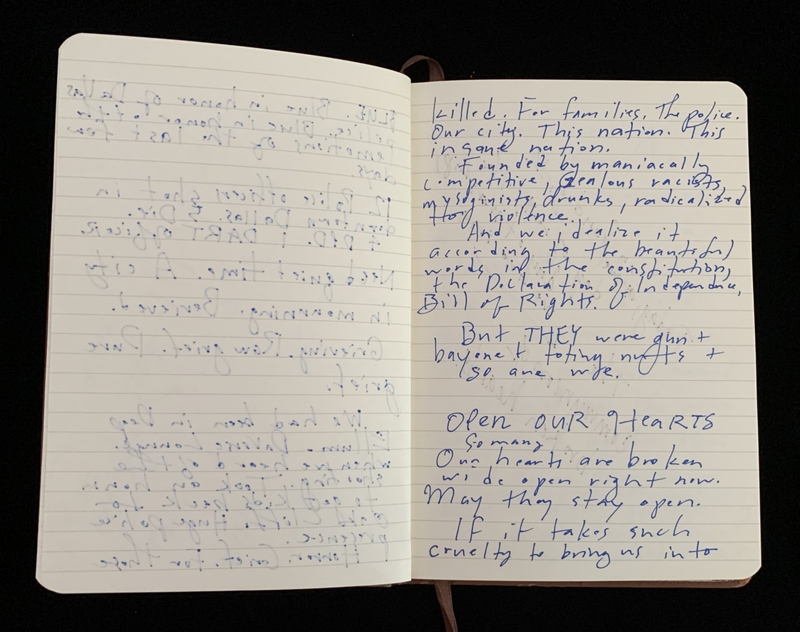 BLUE. Blue in honor of Dallas
police. Blue in honor of the
emotions of the last few
days.
12 Police officers shot in
Dallas. 5 Die.
4 DPD. 1 DART officer.
Need quiet time. A city
in mourning. Berieved.
Grieving. Raw grief. Pure
grief.
We had been in Deep
Ellum. Lounge
when we heard of the
shooting. Took an hour
to get kids back to
Oak Cliff. Huge police
presence.
Horror. Grief. For those
killed. For families. The police.
Our city. This nation. This
insane nation.
Founded by maniacally
competitive, zealous racists,
mysoginists, drunks, radicalized
for violence.
And we idealize it
according to the beautiful
words in the constitution,
the Declaration of Independence,
Bill of Rights.
But THEY were gun +
bayonet toting nuts +
so are we.
OPEN OUR HEARTS
So many
Our hearts are broken
wide open right now.
May they stay open.
If it takes such
cruelty to bring us into